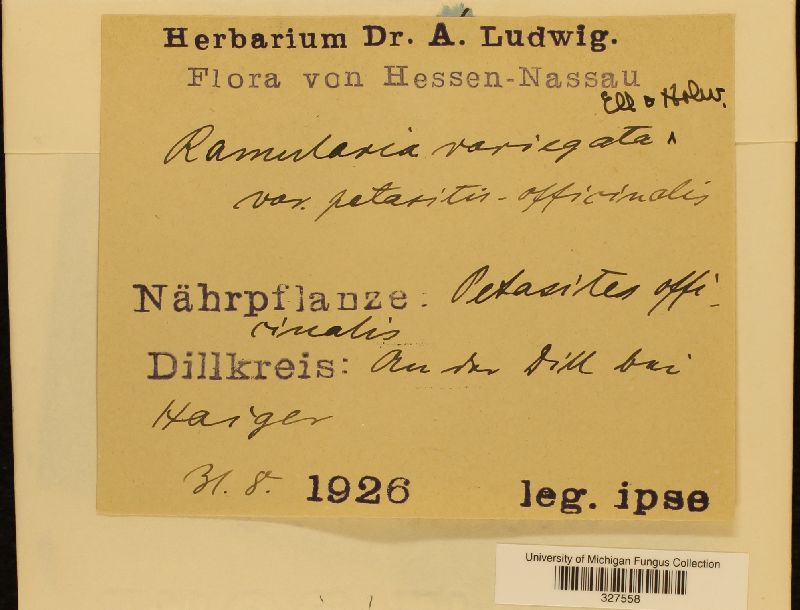 Herbarium Dr. A. Ludwig.
Flora von Hessen-Nassau
Ell & Holw.
Ramularia variegata ∧
var. petasitis-officinalis
Nährpflanze: Petasites offi-
cinalis
Dillkreis: An der Dill bei
Haiger
31. 8. 1926 leg. ipse
University of Michigan Fungus Collection
327558